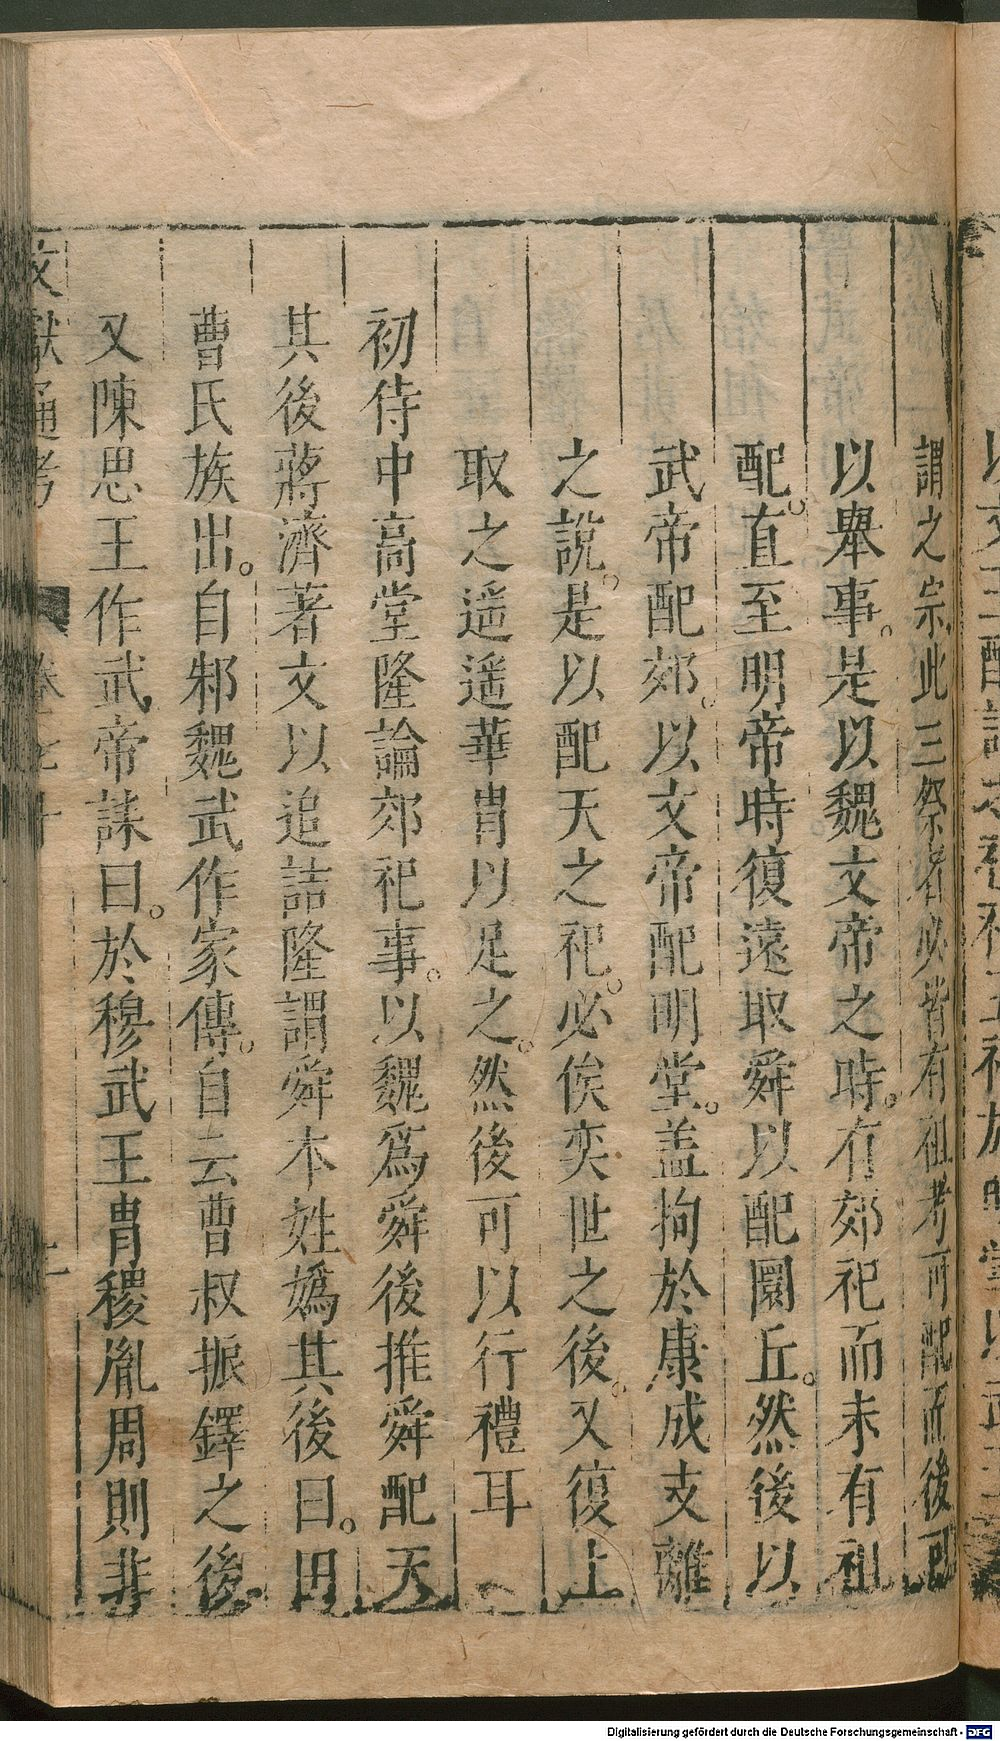 謂之宗此三祭者必皆有祖考可配而後可
以舉事。是以魏文帝之時。有郊祀而未有祖
配。直至明帝時復遠取舜以配圜丘。然後以
武帝配郊。以文帝配明堂。盖拘於康成支離
之說。是以配天之祀。必俟奕世之後。又復上
取之遥遥華胄以足之。然後可以行禮耳
初侍中高堂隆論郊祀事。以魏爲舜後推舜配天
其後蔣濟著文以追詰隆謂舜本姓媯其後曰。田
曹氏族出。自邾魏武作家傳。自云曹叔振鐸之後
又陳思王作武帝誄曰。於穆武王胄稷胤周則非
文獻通考
Digitalisierung gefördert durch die Deutsche Forschungsgemeinschaft - DFG